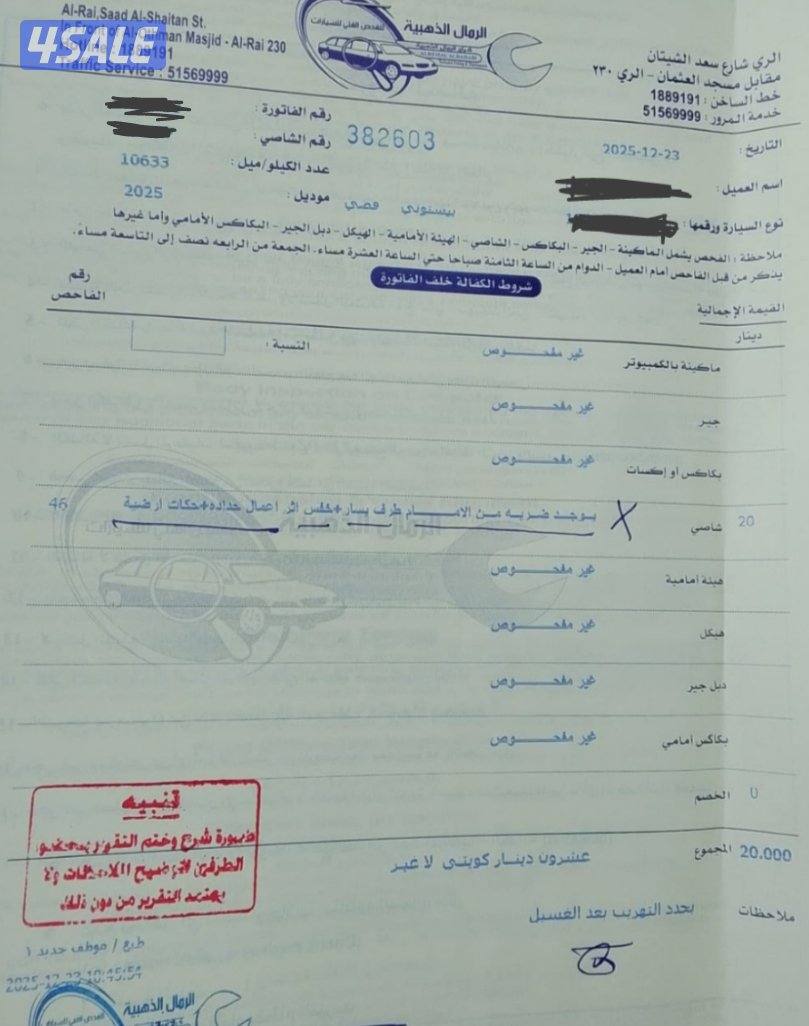 4SALE
Al-Rai,Saad Al-Shaitan St.
In Front of Al-Othman Masjid - Al-Rai 230
Hotline : 1889191
Traffic Service : 51569999
الرمال الذهبية
للفحص الفني للسيارات
الري شارع سعد الشيتان
مقابل مسجد العثمان - الري ٢٣٠
خط الساخن : 1889191
خدمة المرور : 51569999
التاريخ : 2025-12-23
382603
رقم الفاتورة :
رقم الشاصي :
اسم العميل :
عدد الكيلو/ميل : 10633
نوع السيارة ورقمها :
بيستوني فضي
موديل : 2025
ملاحظة : الفحص يشمل الماكينة - الجير - البكاكس - الشاصي - الهيئة الأمامية - الهيكل - دبل الجير - البكاكس الأمامي وأما غيرها
يذكر من قبل الفاحص أمام العميل - الدوام من الساعة الثامنة صباحا حتي الساعة العشرة مساء. الجمعة من الرابعه نصف إلى التاسعة مساء.
شروط الكفالة خلف الفاتورة
القيمة الإجمالية
دينار
رقم الفاحص
ماكينة بالكمبيوتر غير مفحوص النسبة :
جير غير مفحوص
بكاكس أو إكسات غير مفحوص
20 شاصي X يوجد ضربه من الامام طرف يسار+خفس اثر اعمال حداده+حكات ارضية 46
هيئة أمامية غير مفحوص
هيكل غير مفحوص
دبل جير غير مفحوص
بكاكس أمامي غير مفحوص
0 الخصم
20.000 المجموع عشرون دينار كويتى لا غير
ملاحظات يحدد التهريب بعد الغسيل
تنبيه
ضرورة شرح وختم التقرير بحضور
الطرفين لتوضيح الملاحظات ولا
يعتمد التقرير من دون ذلك
طبع / موظف جديد ١
2025-12-23 10:45:51
الرمال الذهبية